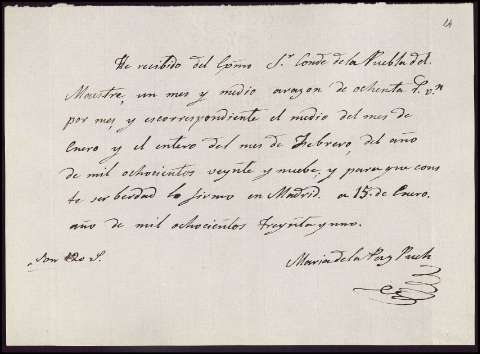 24
He recibido del Exmo Sr Conde de la Puebla del
Maestre, un mes y medio arazon de ochenta r.s v.n
por mes, y es correspondiente el medio del mes de
Enero y el entero del mes de Febrero, del año
de mil ochocientos veynte y nuebe, y para que cons
te ser berdad lo firmo en Madrid. a 15 de Enero.
año de mil ochocientos treynta y uno.
Son 120 r.s
Maria de la Paz Puch